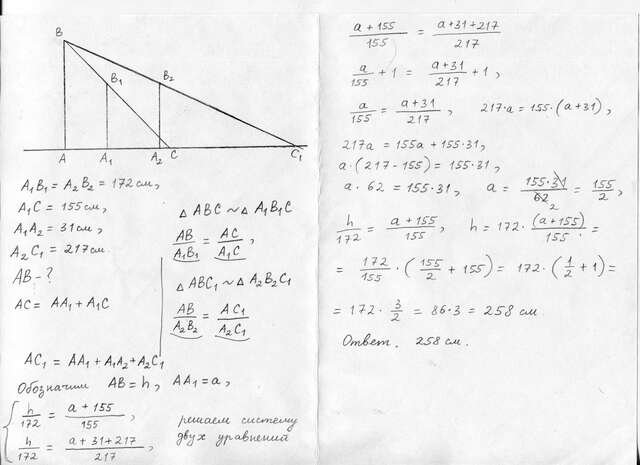 B
B₁
B₂
A
A₁
A₂
C
C₁
A₁B₁ = A₂B₂ = 172 см,
A₁C = 155 см,
A₁A₂ = 31 см,
A₂C₁ = 217 см.
AB - ?
AC = AA₁ + A₁C
△ ABC ~ △ A₁B₁C
AB/A₁B₁ = AC/A₁C,
△ ABC₁ ~ △ A₂B₂C₁
AB/A₂B₂ = AC₁/A₂C₁
AC₁ = AA₁ + A₁A₂ + A₂C₁
Обозначим AB = h, AA₁ = a,
h/172 = (a + 155)/155,
h/172 = (a + 31 + 217)/217,
решаем систему
двух уравнений
(a + 155)/155 = (a + 31 + 217)/217
a/155 + 1 = (a + 31)/217 + 1,
a/155 = (a + 31)/217, 217·a = 155·(a + 31),
217a = 155a + 155·31,
a·(217 - 155) = 155·31,
a·62 = 155·31, a = 155·31/62 2 = 155/2,
h/172 = (a + 155)/155, h = 172·(a + 155)/155 =
= 172/155 · (155/2 + 155) = 172·(1/2 + 1) =
= 172·3/2 = 86·3 = 258 см.
Ответ. 258 см.